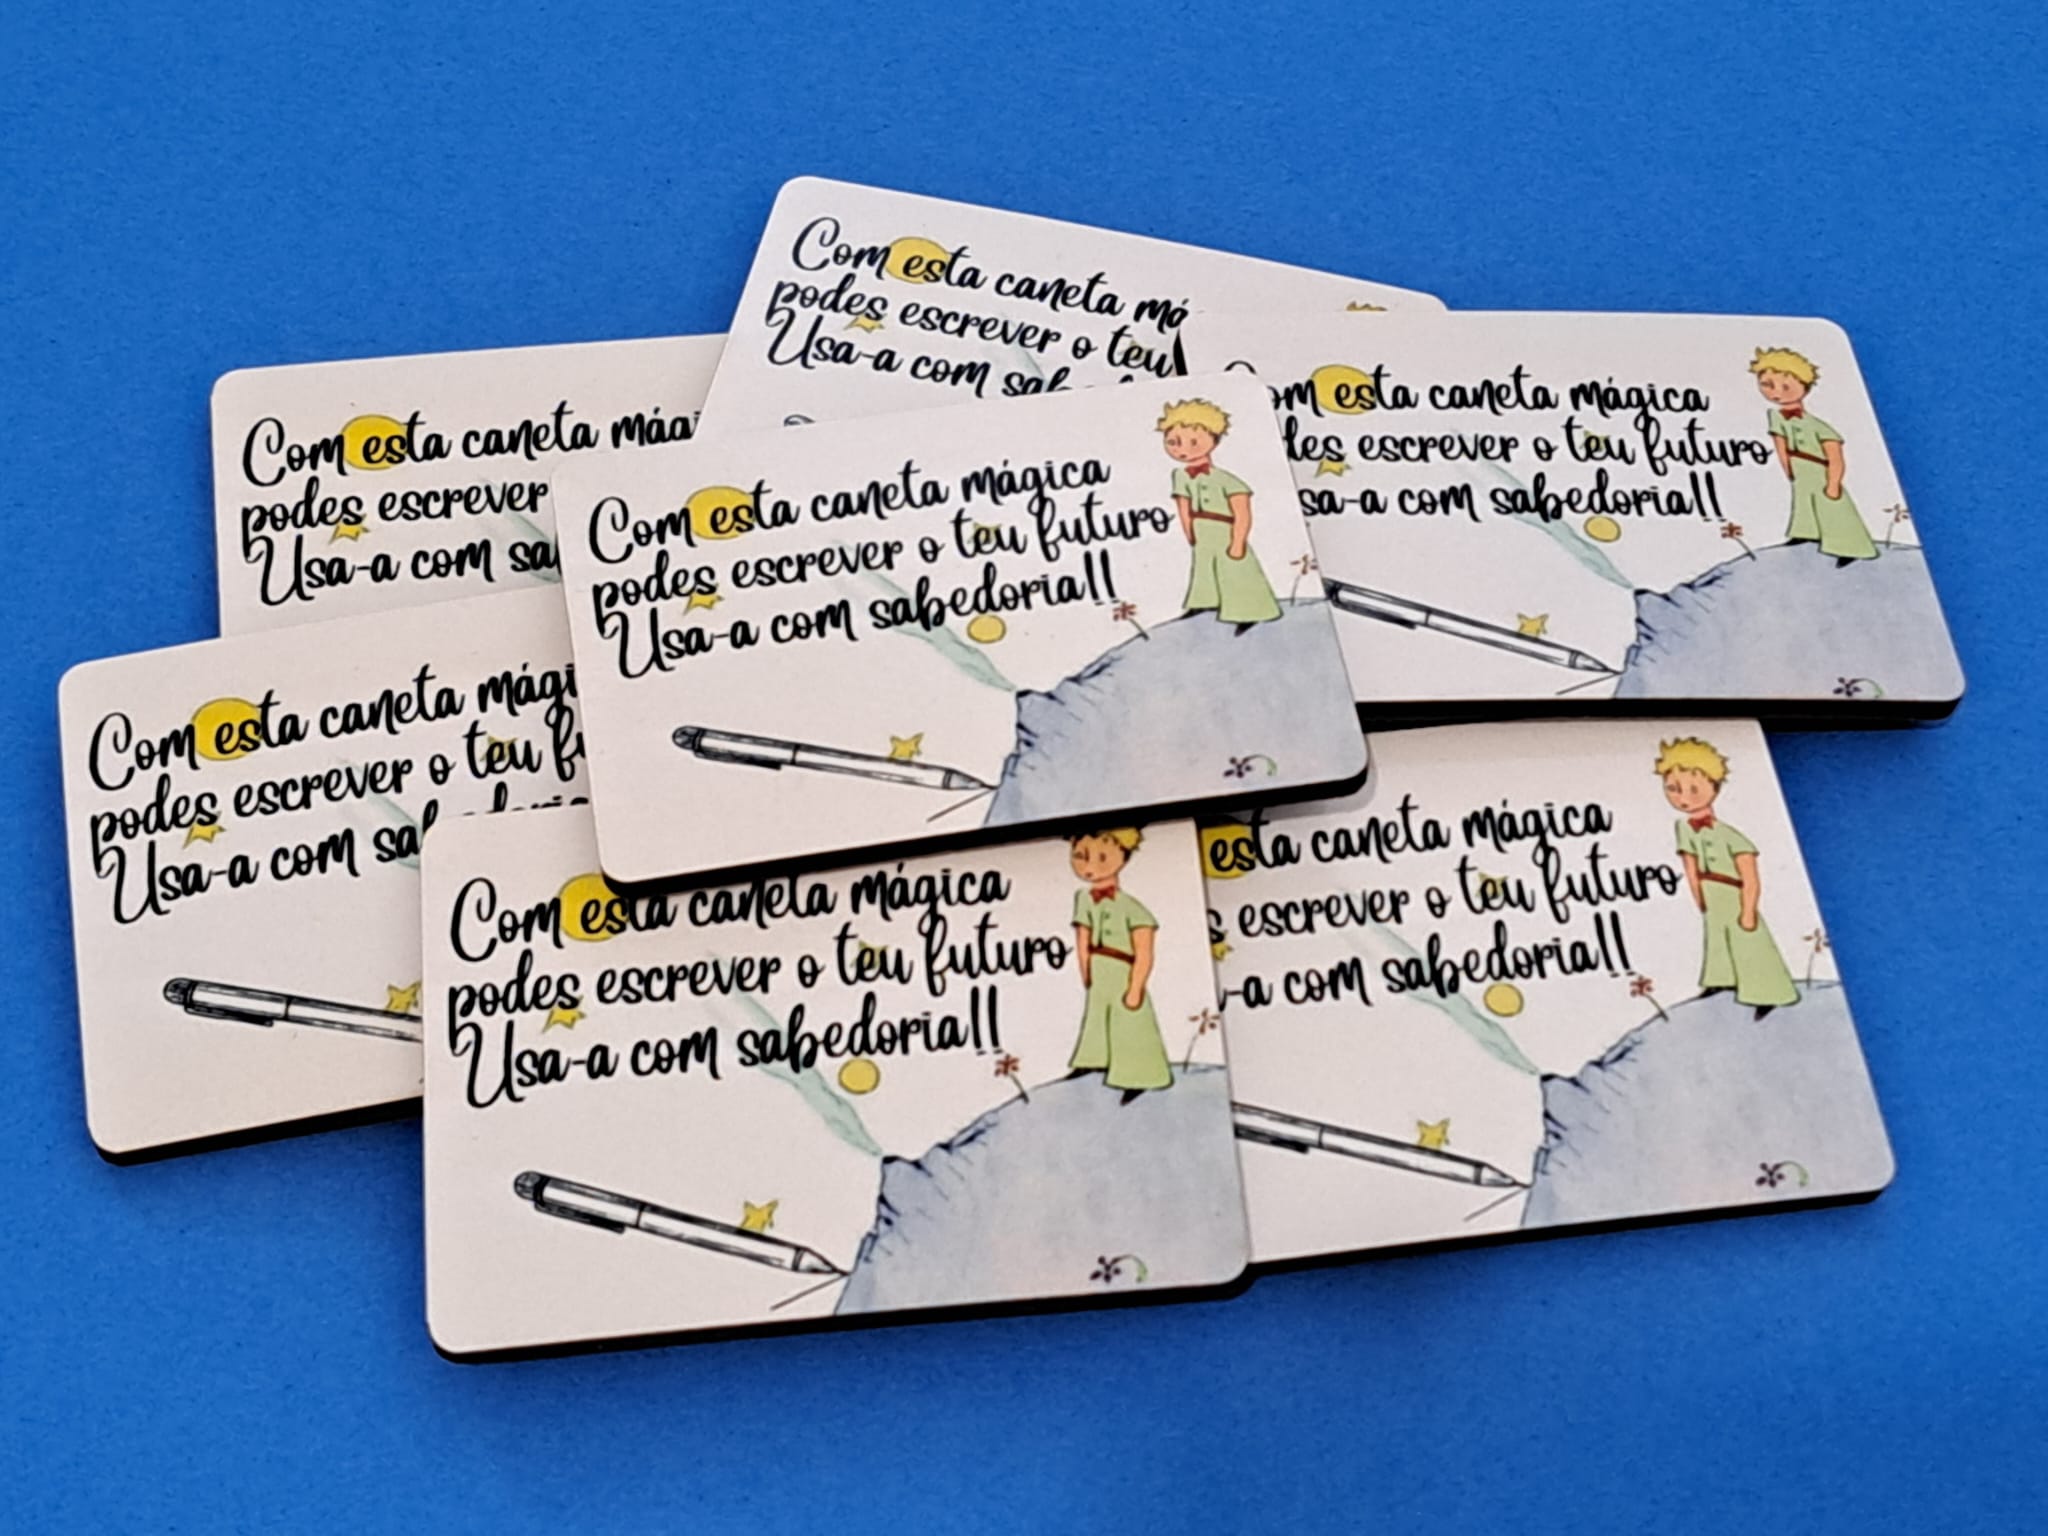 Com esta caneta má
podes escrever o teu
Usa-a com sab
Com esta caneta mági
podes escrever
Usa-a com sa
om esta caneta mágica
des escrever o teu futuro
sa-a com sabedoria!!
Com esta caneta mágica
podes escrever o teu futuro
Usa-a com sabedoria!!
Com esta caneta mági
podes escrever o teu fu
Usa-a com sabedoria
Com esta caneta mágica
podes escrever o teu futuro
Usa-a com sabedoria!!
esta caneta mágica
s escrever o teu futuro
-a com sabedoria!!